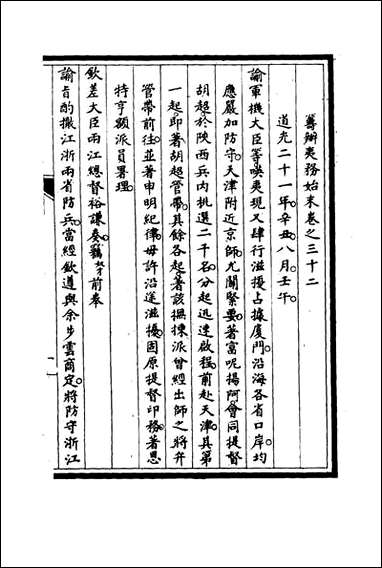 籌辦夷務始末卷之三十二
道光二十一年辛丑八月壬午
諭軍機大臣等嘆夷現又肆行滋擾占據廈門沿海各省口岸均
應嚴加防守天津附近京師尤關緊要著富呢揚阿會同提督
胡超於陝西兵內挑選二千名分起迅速啟程前赴天津其第
一起即著胡超管帶其餘各起著該撫揀派曾經出師之將弁
管帶前往並著申明紀律毋許沿途滋擾固原提督印務著恩
特亨額派員署理
欽差大臣兩江總督裕謙奏竊奴才前奉
諭旨酌撤江浙兩省防兵當經欽遵與余步雲商定將防守浙江
一